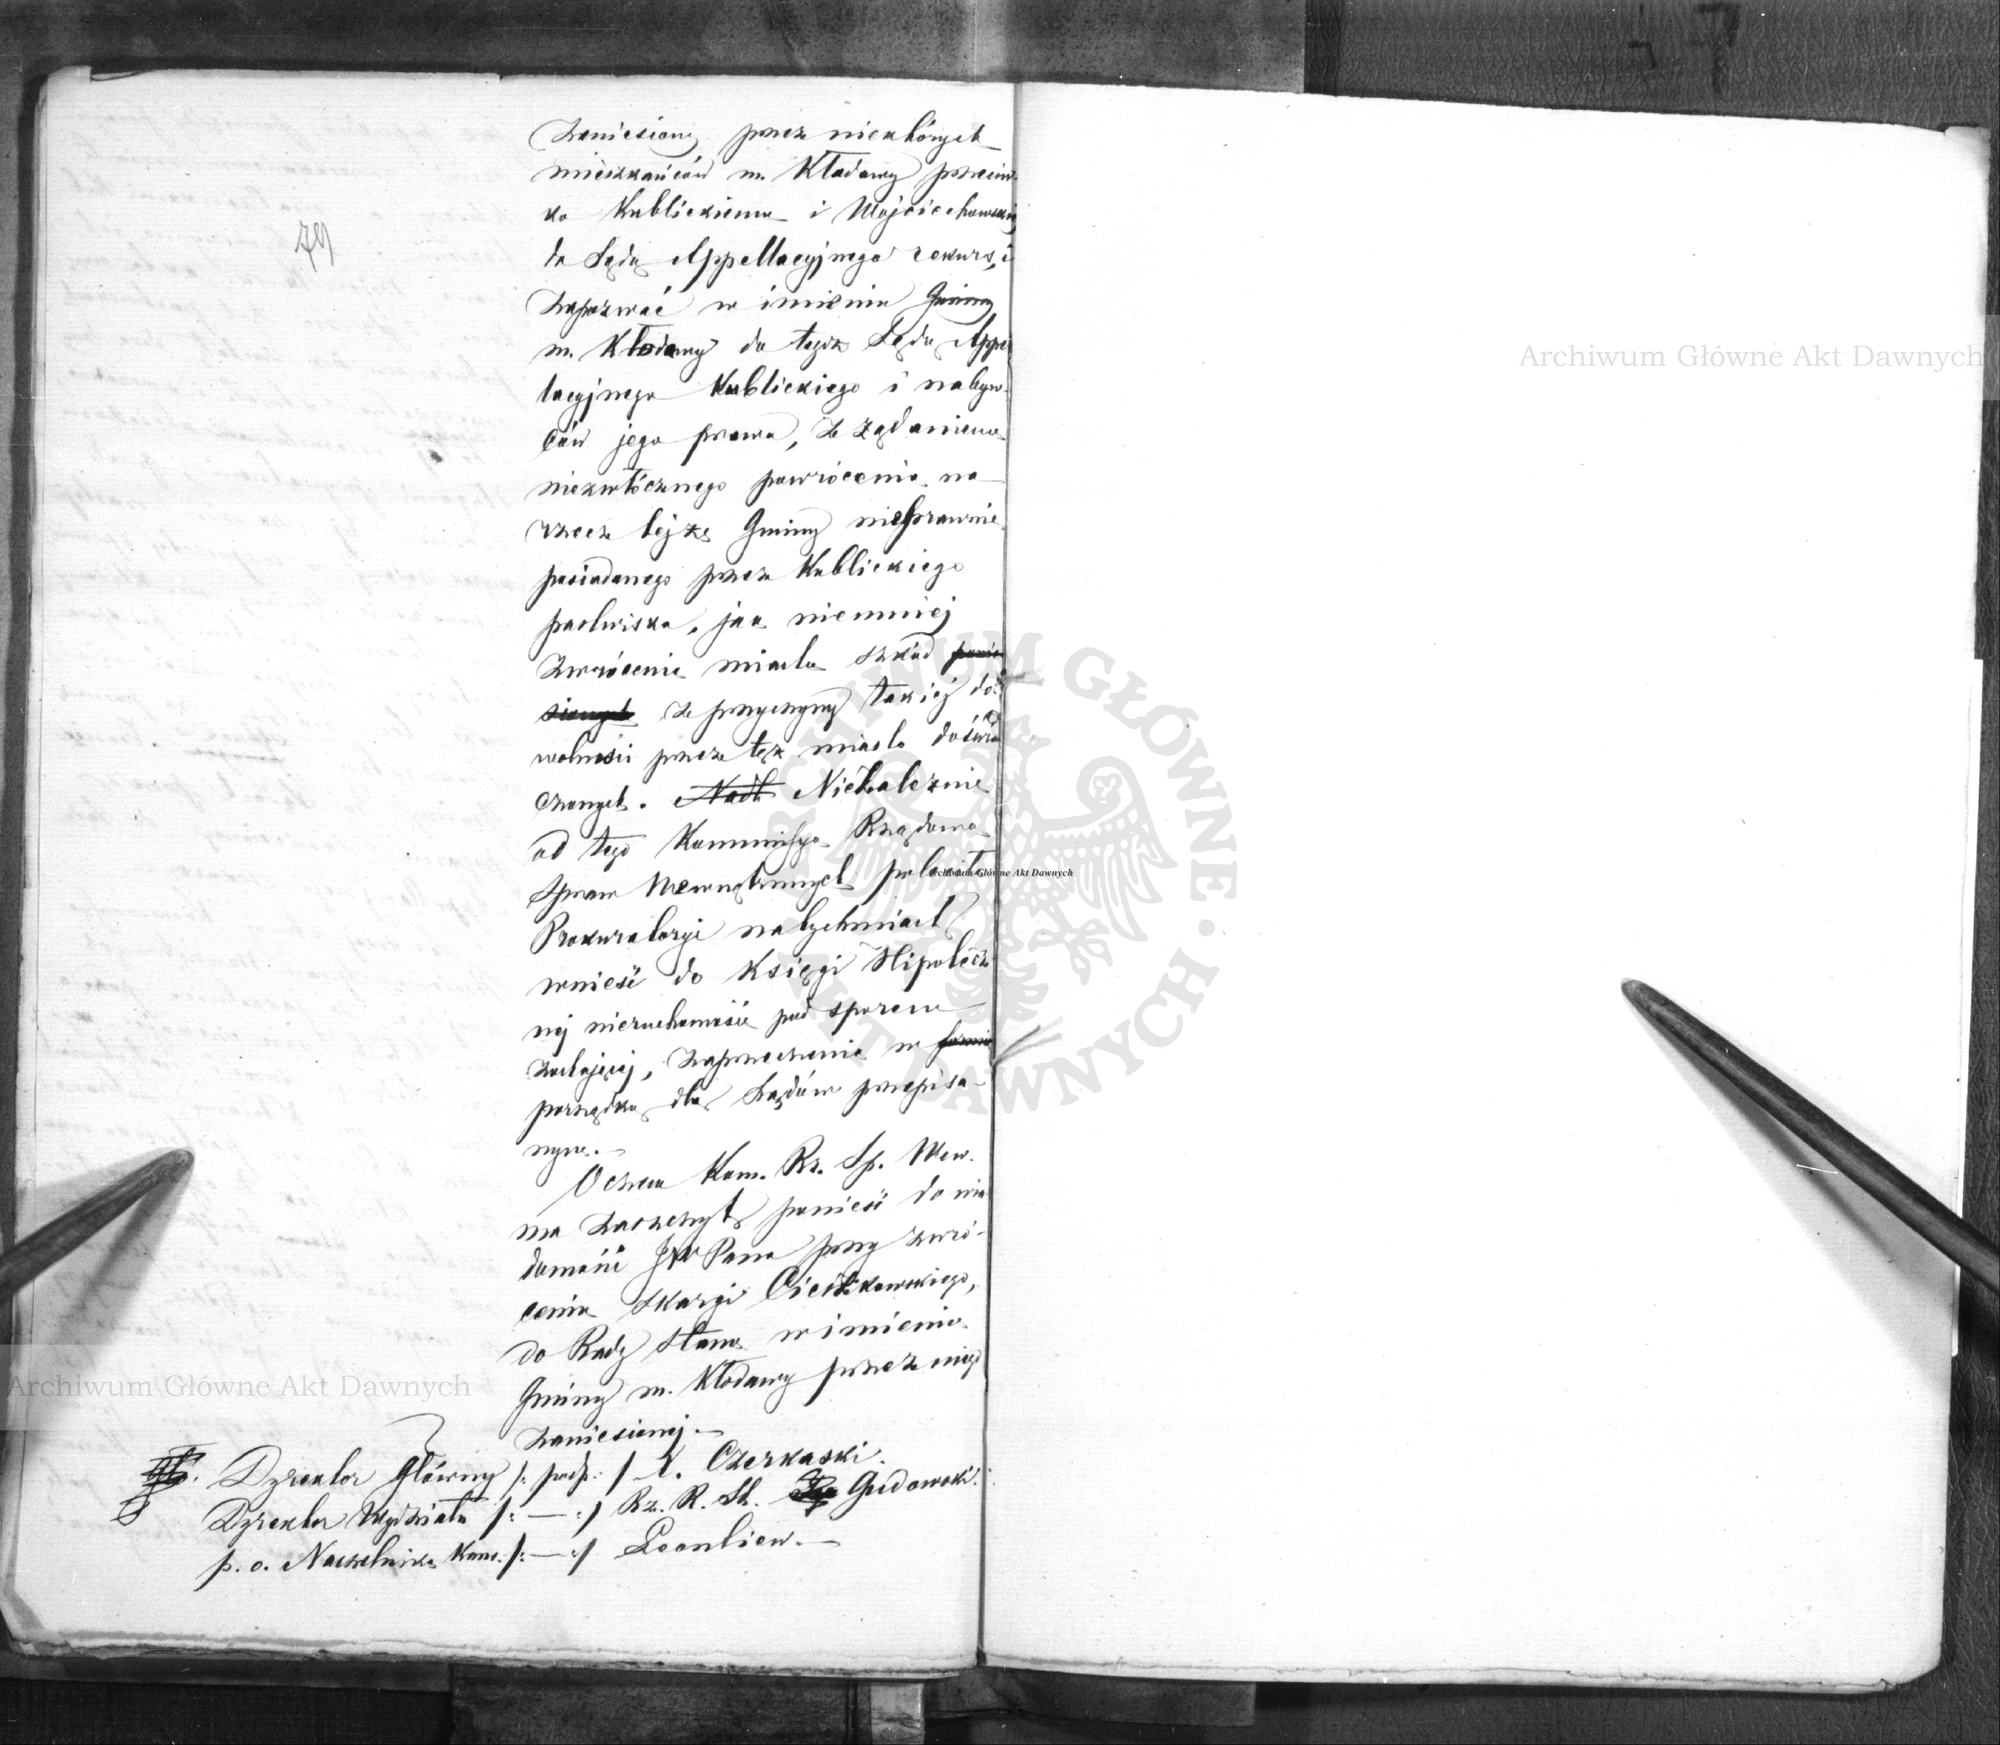 79
zaniesiony przez niektórych
mieszkańców m. Kłodawy przeciw-
ko Kublickiemu i Wojciechowski
do Sądu Appellacyjnego rekurs, i
zapozwać w imieniu Gminy
m. Kłodawy do tegoż Sądu Appel
lacyjnego Kublickiego i nabyw-
ców jego prawa, z żądaniem
niezwłócznego powrócenia na
rzecz tejże Gminy nieprawnie
posiadanego przez Kublickiego
pastwiska, jak niemniej
zwrócenia miastu szkód ponie
sionych z przyczyny takiej do-
wolności przez toż miasto doświad
czonych. Nadto Niezależnie
od tego Kommissya Rządowa
Spraw Wewnętrznych poleciła
Prokuratoryi natychmiast
wnieść do Księgi Hipotecz
nej nieruchomości pod sporem
zostającej, zaprzeczenie w formie
porządku dla Sądów przepisa-
nym.—
O czem Kom. Rz. Sp. Wew.
ma zaszczyt ponieść do wia
domości JW Pana przy zwró-
ceniu skargi Cieczkowskiego,
do Rady Stanu w imieniu
Gminy m. Kłodawy przez niego
zaniesionej.—
Dyrektor Główny /: podp: / Czerkaski.
Dyrektor Wydziału /: — :/ Rz. R. St. Gudowski.
p. o. Naczelnika Kanc. /: — :/ Leontiew.—
Archiwum Główne Akt Dawnych
Archiwum Główne Akt Dawnych
Archiwum Główne Akt Dawnych
ARCHIWUM GŁÓWNE AKT DAWNYCH